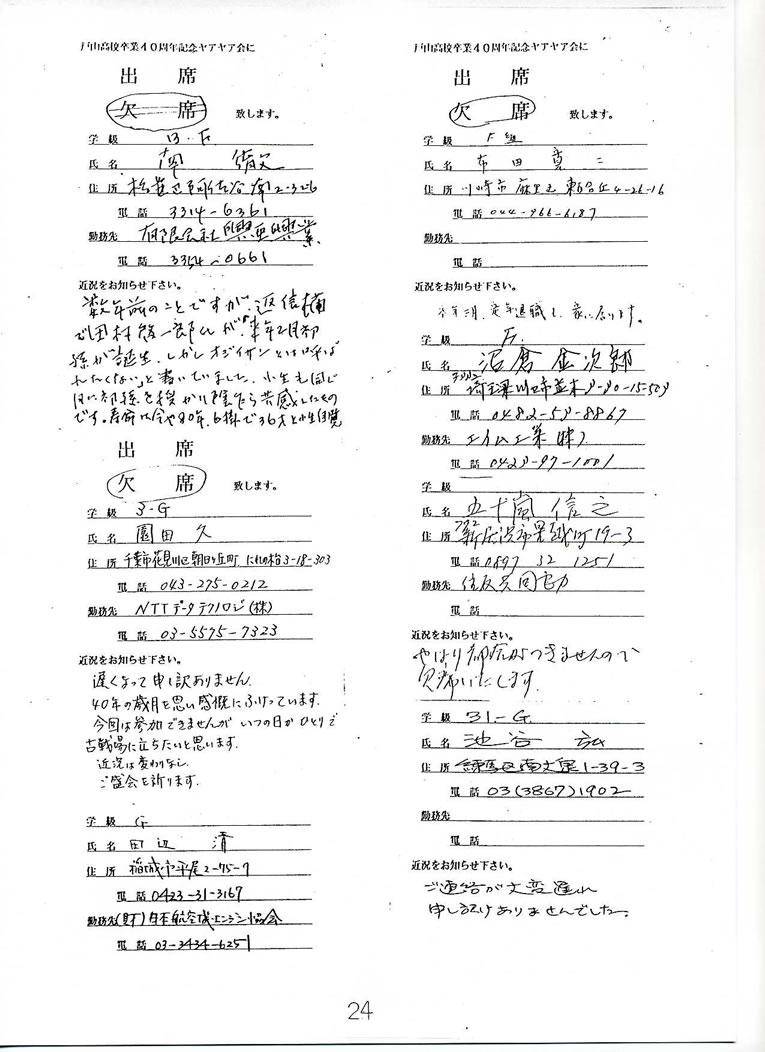 戸山高校卒業40周年記念ヤアヤア会に
出 席
欠 席 致します。
学 級 B.F
氏 名
住 所 南2-3-26
電 話 3314-6361
勤務先 有限会社 興亜興業
電 話 3354-0661
近況をお知らせ下さい。
数年前のことですが、返信欄
で田村 一郎くんが、来年2月初
孫が誕生、しかしオジイサンとは呼ば
れたくない」と書いていました。小生も同じ
共感したもの
です。寿命は今や80年、6掛で36才と小生自覚
出 席
欠 席 致します。
学 級 3-G
氏 名 園田 久
住 所 千葉市花見川区朝日ヶ丘町 にれの杜3-18-303
電 話 043-275-0212
勤務先 NTTデータテクノロジ(株)
電 話 03-5575-7323
近況をお知らせ下さい。
遅くなって申し訳ありません。
40年の歳月を思い感慨にふけっています。
今回は参加できませんが いつの日か ひとりで
古戦場に立ちたいと思います。
近況は変わりなし
ご盛会を祈ります。
学 級 G
氏 名 田辺 清
住 所 稲城市平尾2-75-7
電 話 0423-31-3167
勤務先 (財)日本航空機エンジン協会
電 話 03-3434-6251
戸山高校卒業40周年記念ヤアヤア会に
出 席
欠 席 致します。
学 級 F組
氏 名 布田 真二
住 所 川崎市麻生区東百合丘4-26-16
電 話 044-966-6187
勤務先
電 話
近況をお知らせ下さい。
本年三月、定年退職し、家に居ります。
学 級 F.
氏 名 沼倉 金次郎
住 所 埼玉県川口市並木3-30-15-503
電 話 0482-53-8867
勤務先 エイム工業(株)
電 話 0423-97-1001
学 級
氏 名 五十嵐 信之
住 所 792 新居浜市星越町19-3
電 話 0897 32 1251
勤務先 住友共同電力
電 話
近況をお知らせ下さい。
やはり都合がつきませんので
欠席いたします。
学 級 31-G
氏 名 池谷
住 所 練馬区南大泉1-39-3
電 話 03(3867)1902
勤務先
電 話
近況をお知らせ下さい。
ご連絡が大変遅れ
申し訳ありませんでした。
24